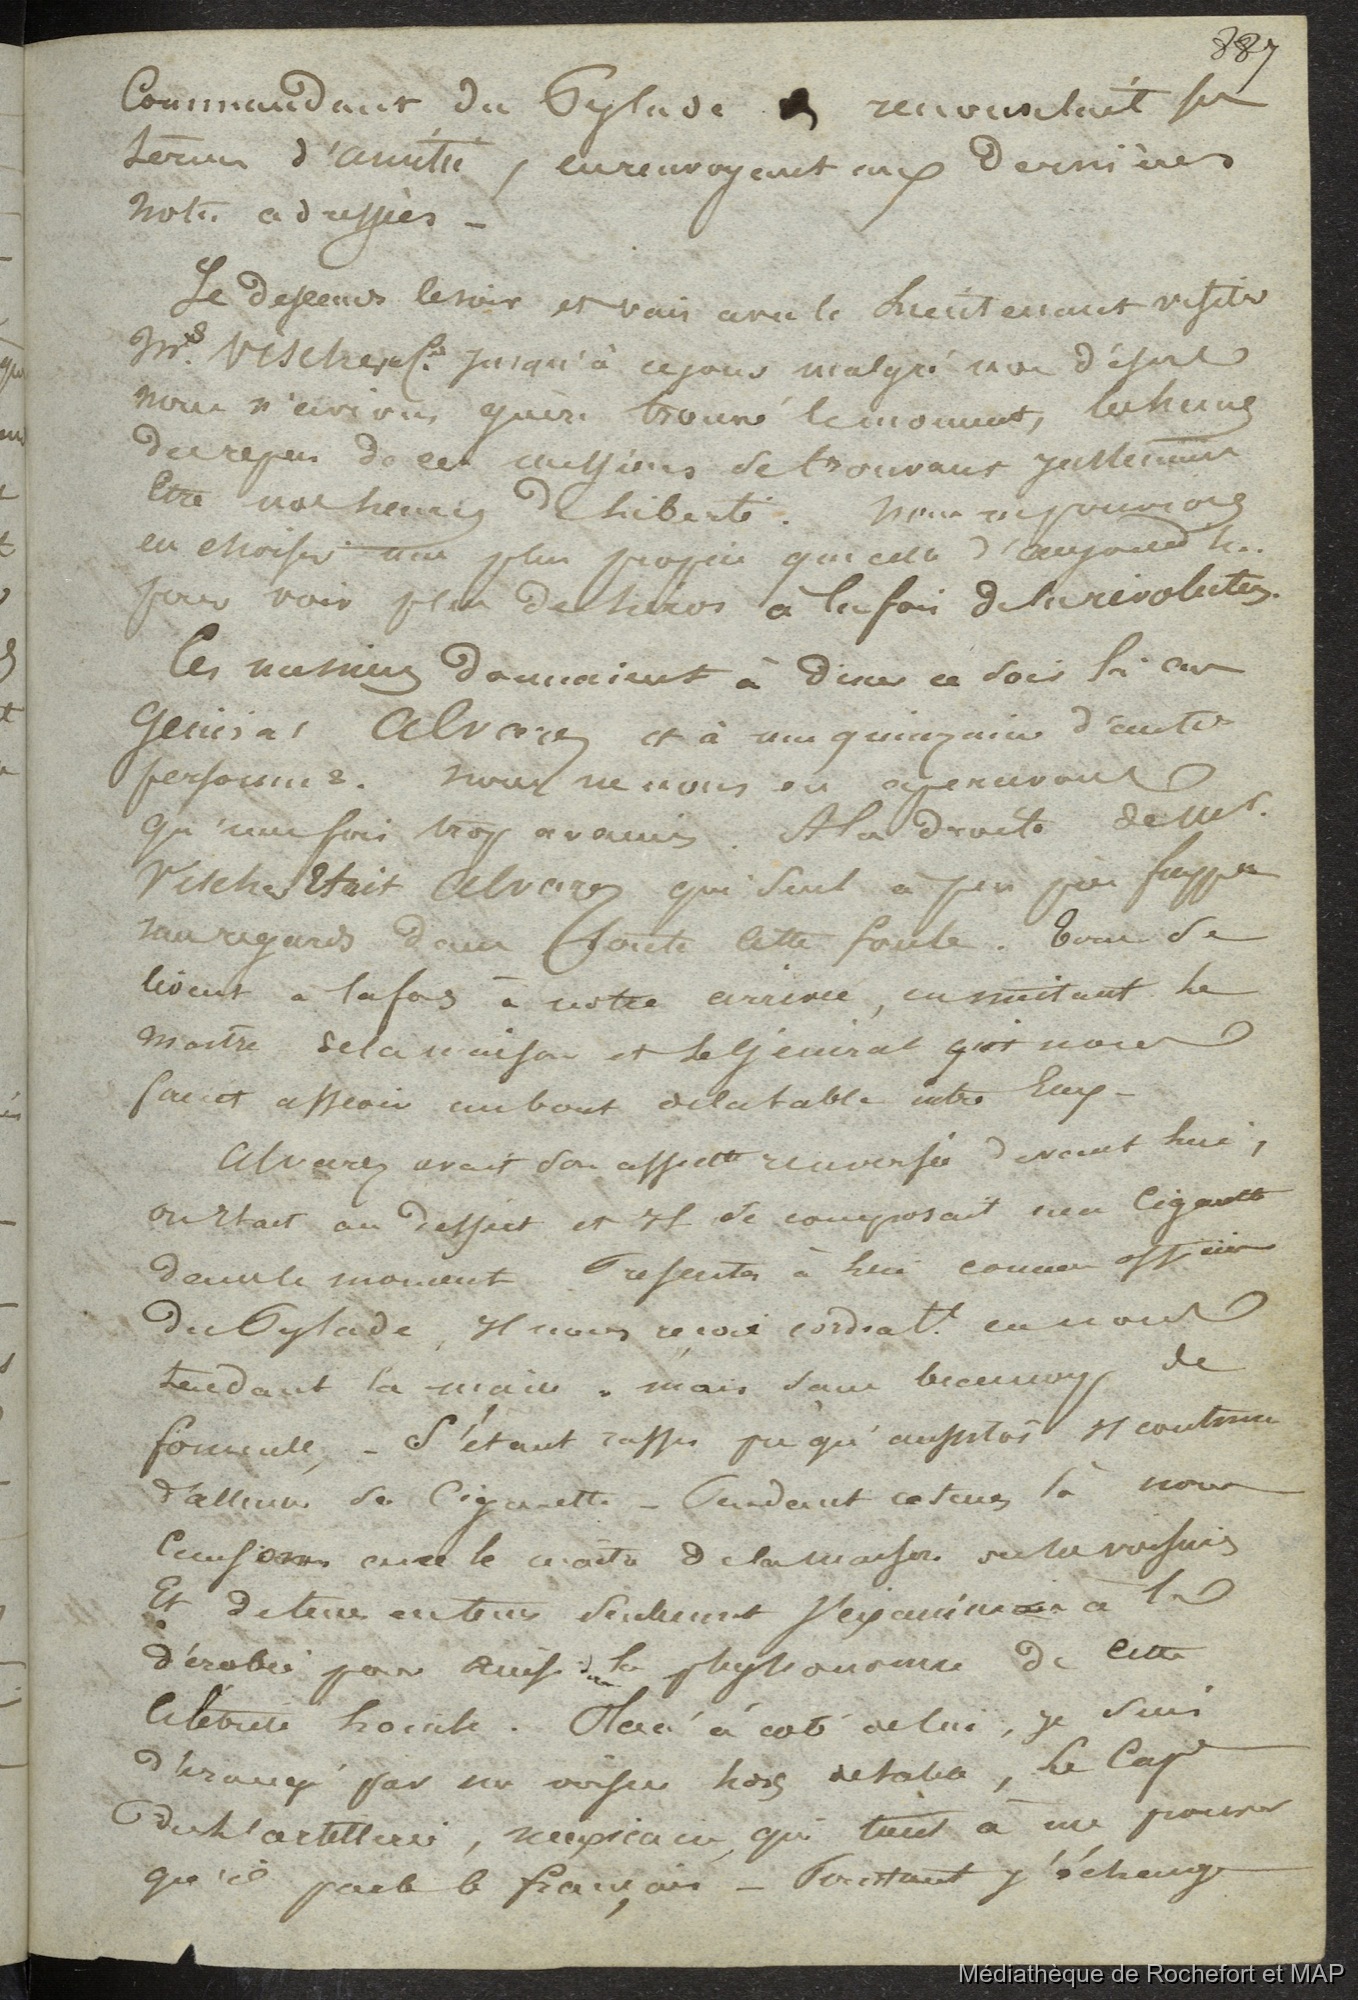 887
Commandant du Pylade renouvelait ses
termes d'amitié, en renvoyant aux dernières
notes adressées -
Je descends le soir et vais avec le Lieutenant visiter
Mrs. Vischer & Cie. Jusqu'à ce jour malgré nos désirs
nous n'avions guère trouvé le moment, les heures
du repas de ces messieurs se trouvant justement
être nos heures de liberté. Nous ne pouvions
en choisir une plus propice que celle d'aujourd'h..
pour voir plus de héros à la fois de la révolution.
Ces messieurs donnaient à diner ce soir là au
Général Alvarez et à une quinzaine d'autres
personnes. Nous ne nous en apercevons
qu'une fois trop avancés. A la droite de Mr.
Vischer était Alvarez qui seul a peu près frappa
nos regards dans toute cette foule. Tous se
lèvent a la fois à notre arrivée, en imitant le
maitre de la maison et le Général qui nous
font asseoir au bout de la table entre Eux -
Alvarez avait son assiette renversée devant lui,
on était au dessert et il se composait une Cigarette
dans le moment Présentés à lui comme officiers
du Pylade, il nous reçoit cordialt. en nous
tendant la main. mais sans beaucoup de
formule, - S'étant rassis presqu'aussitôt il continue
d'allumer sa Cigarette - Pendant ce tems là nous
causions avec le maitre de la maison ou les voisins
Et de tems en tems seulement j'examinais à la
dérobée pour saisir la physionomie de cette
célébrité locale. Placé à coté de lui, je suis
dérangé par un voisin hors de table, le Cape
de l'artillerie, mexicain, qui tient à me prouver
qu'il parle le français - Pourtant j'échange
Médiathèque de Rochefort et MAP